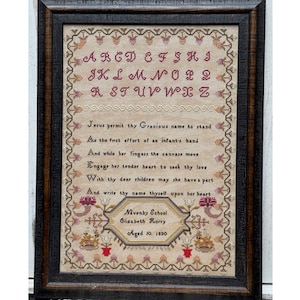 A B C D E F G H I
J K L M N O P Q
R S T U V W X Z
Jesus permit thy Gracious name to stand
As the first effort of an infants hand
And while her fingers the canvass move
Engage her tender heart to seek thy love
With thy dear children may she have a part
And write thy name thyself upon her heart
School
Elizabeth
Aged 10. 1890